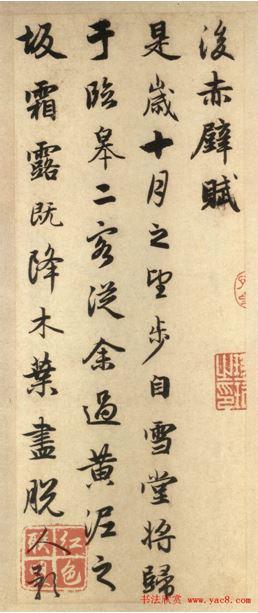 後赤壁賦
是歲十月之望步自雪堂將歸
于臨皋二客從余過黃泥之
坂霜露既降木葉盡脫人影
紅色
书法欣赏 www.yac8.com